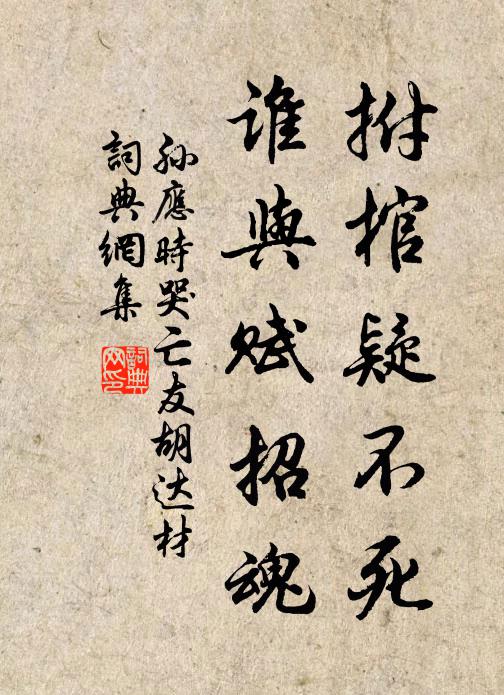 拊棺疑不死
誰與賦招魂
孫應時哭亡友胡达材
詞典網集
詞典网印